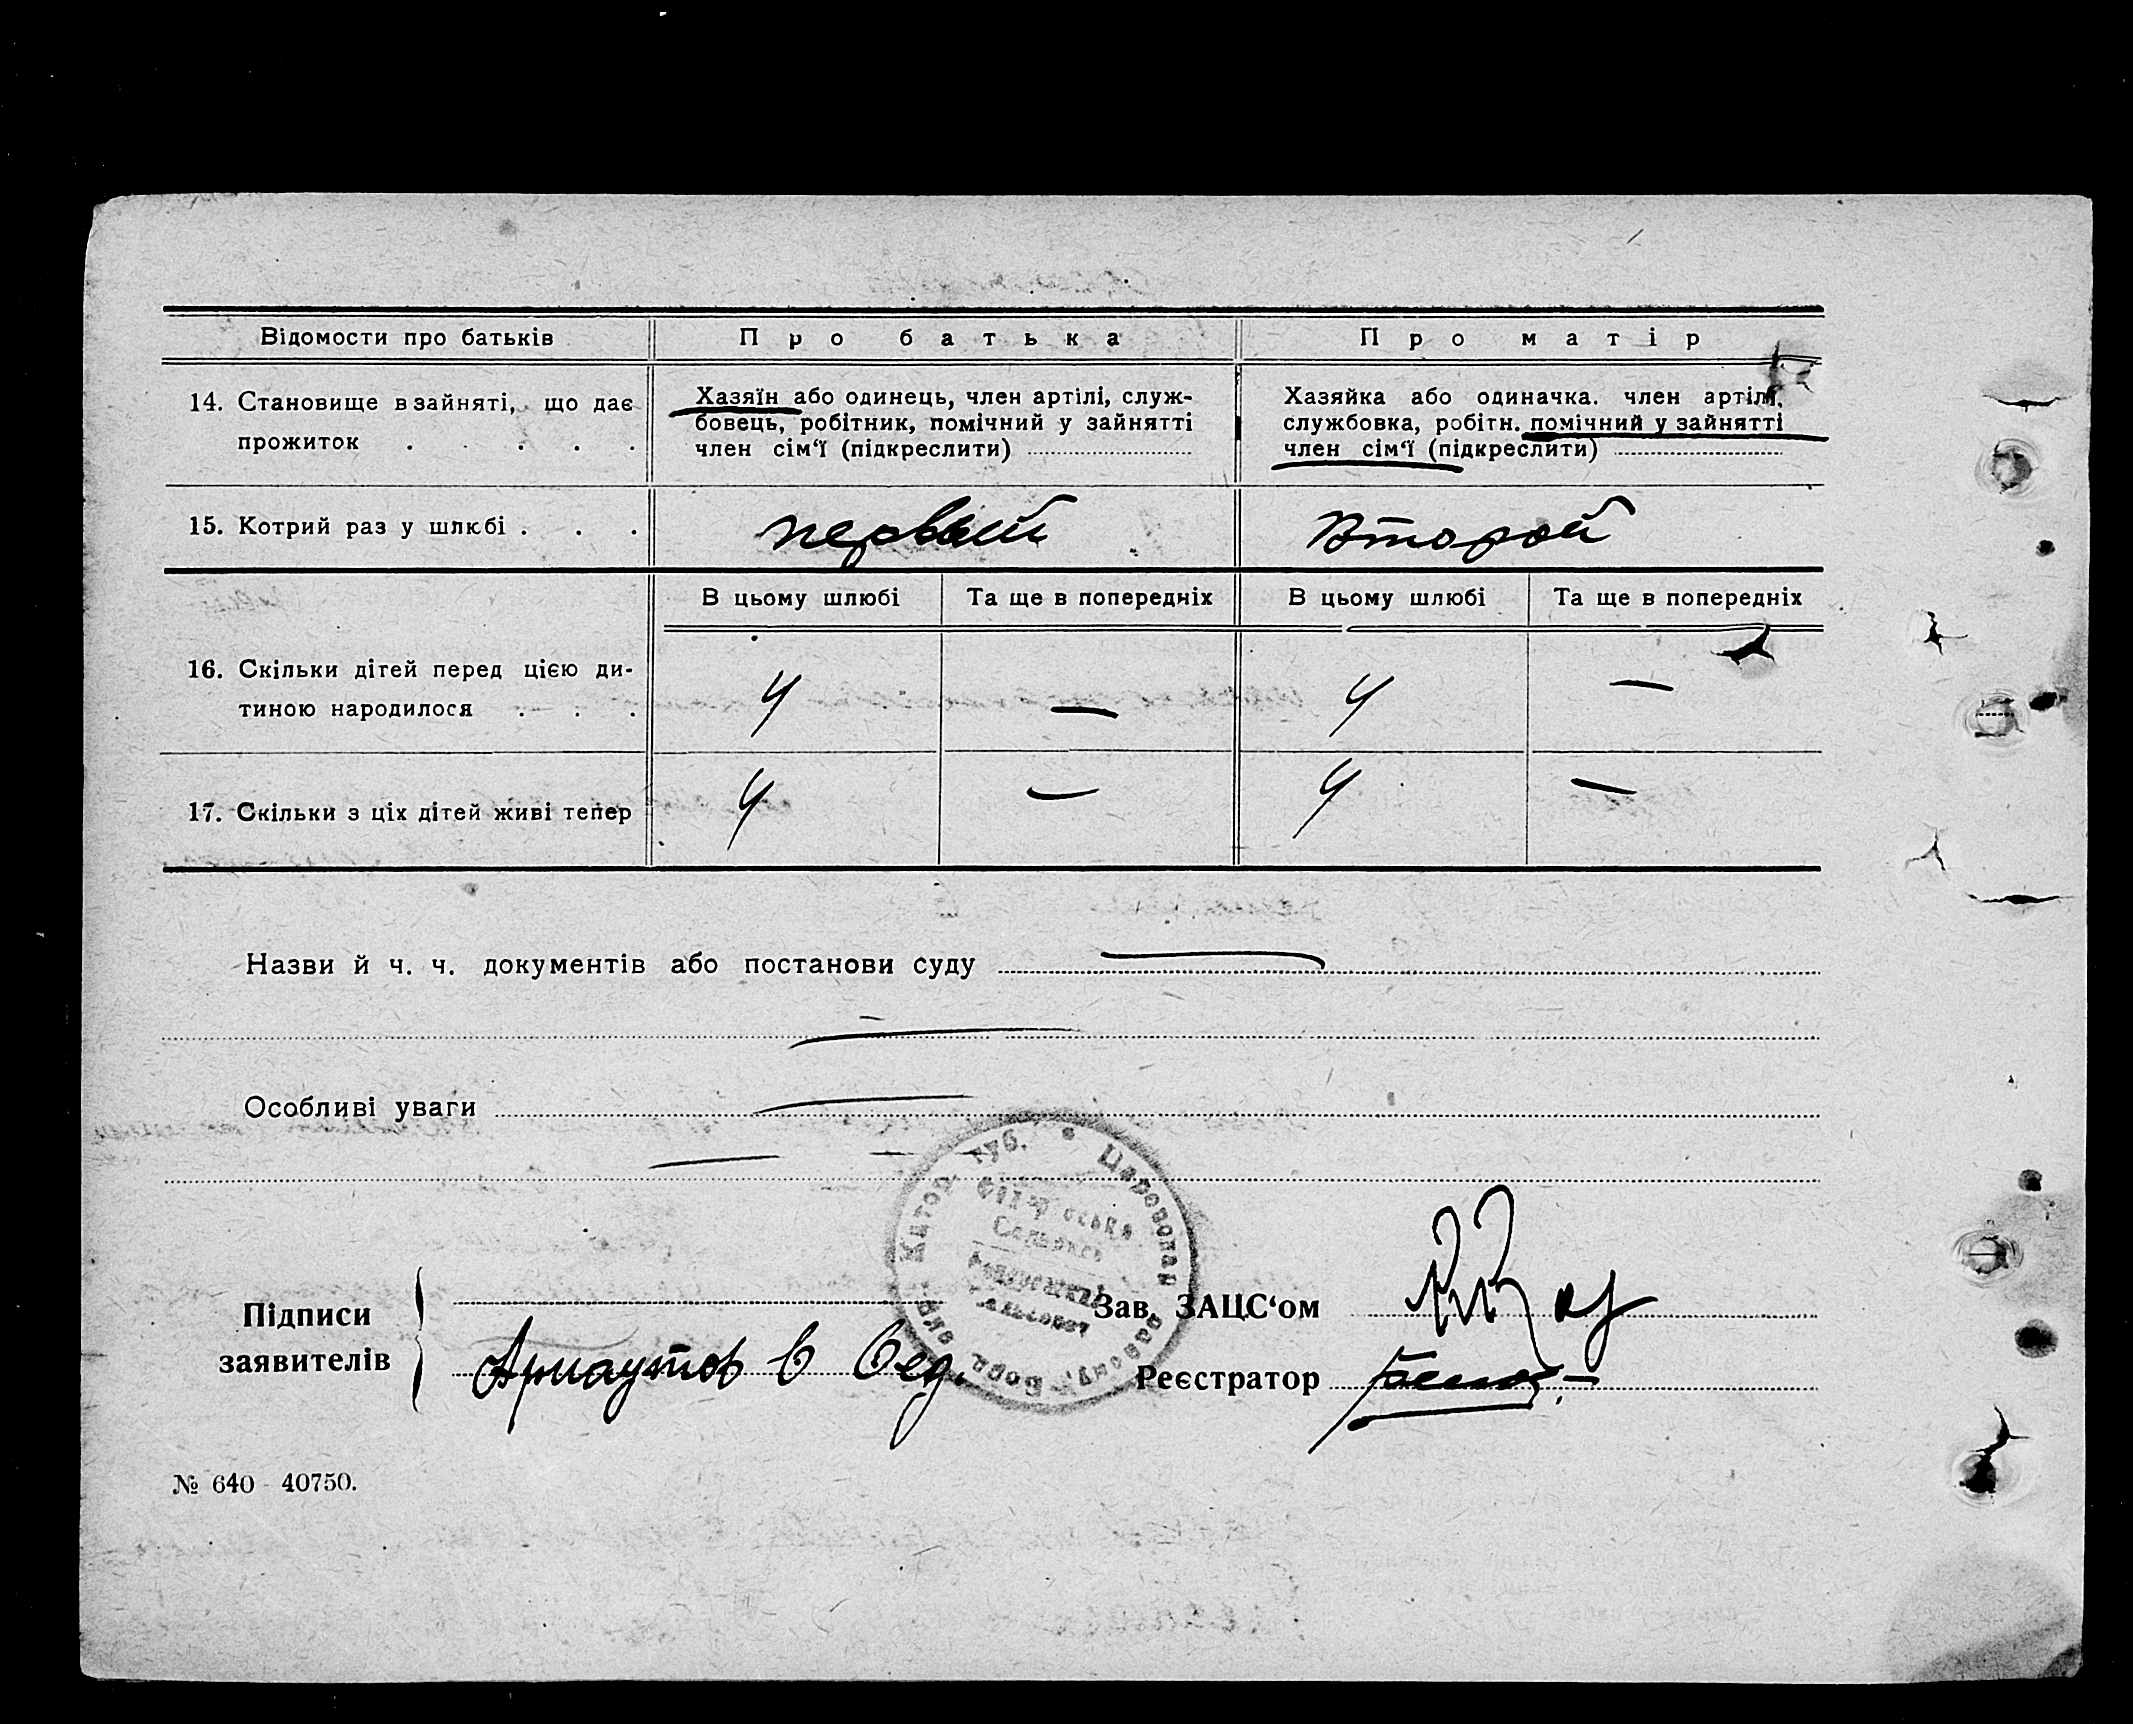 Відомости про батьків Про батька Про матір
14. Становище в зайняті, що дає прожиток . . . .
Хазяїн або одинець, член артілі, служ-
бовець, робітник, помічний у зайнятті
член сім‘ї (підкреслити)
Хазяйка або одиначка. член артілі,
службовка, робітн. помічний у зайнятті
член сім‘ї (підкреслити)
15. Котрий раз у шлюбі . . . первый Второй
В цьому шлюбі Та ще в попередніх В цьому шлюбі Та ще в попередніх
16. Скільки дітей перед цією ди-
тиною народилося . . . 4 — 4 —
17. Скільки з ціх дітей живі тепер 4 — 4 —
Назви й ч. ч. документів або постанови суду —
—
Особливі уваги —
— —
губ. • Цареводар
Підписи
заявителів
Арнаутов
Зав. ЗАЦС‘ом
Реєстратор
№ 640 - 40750.